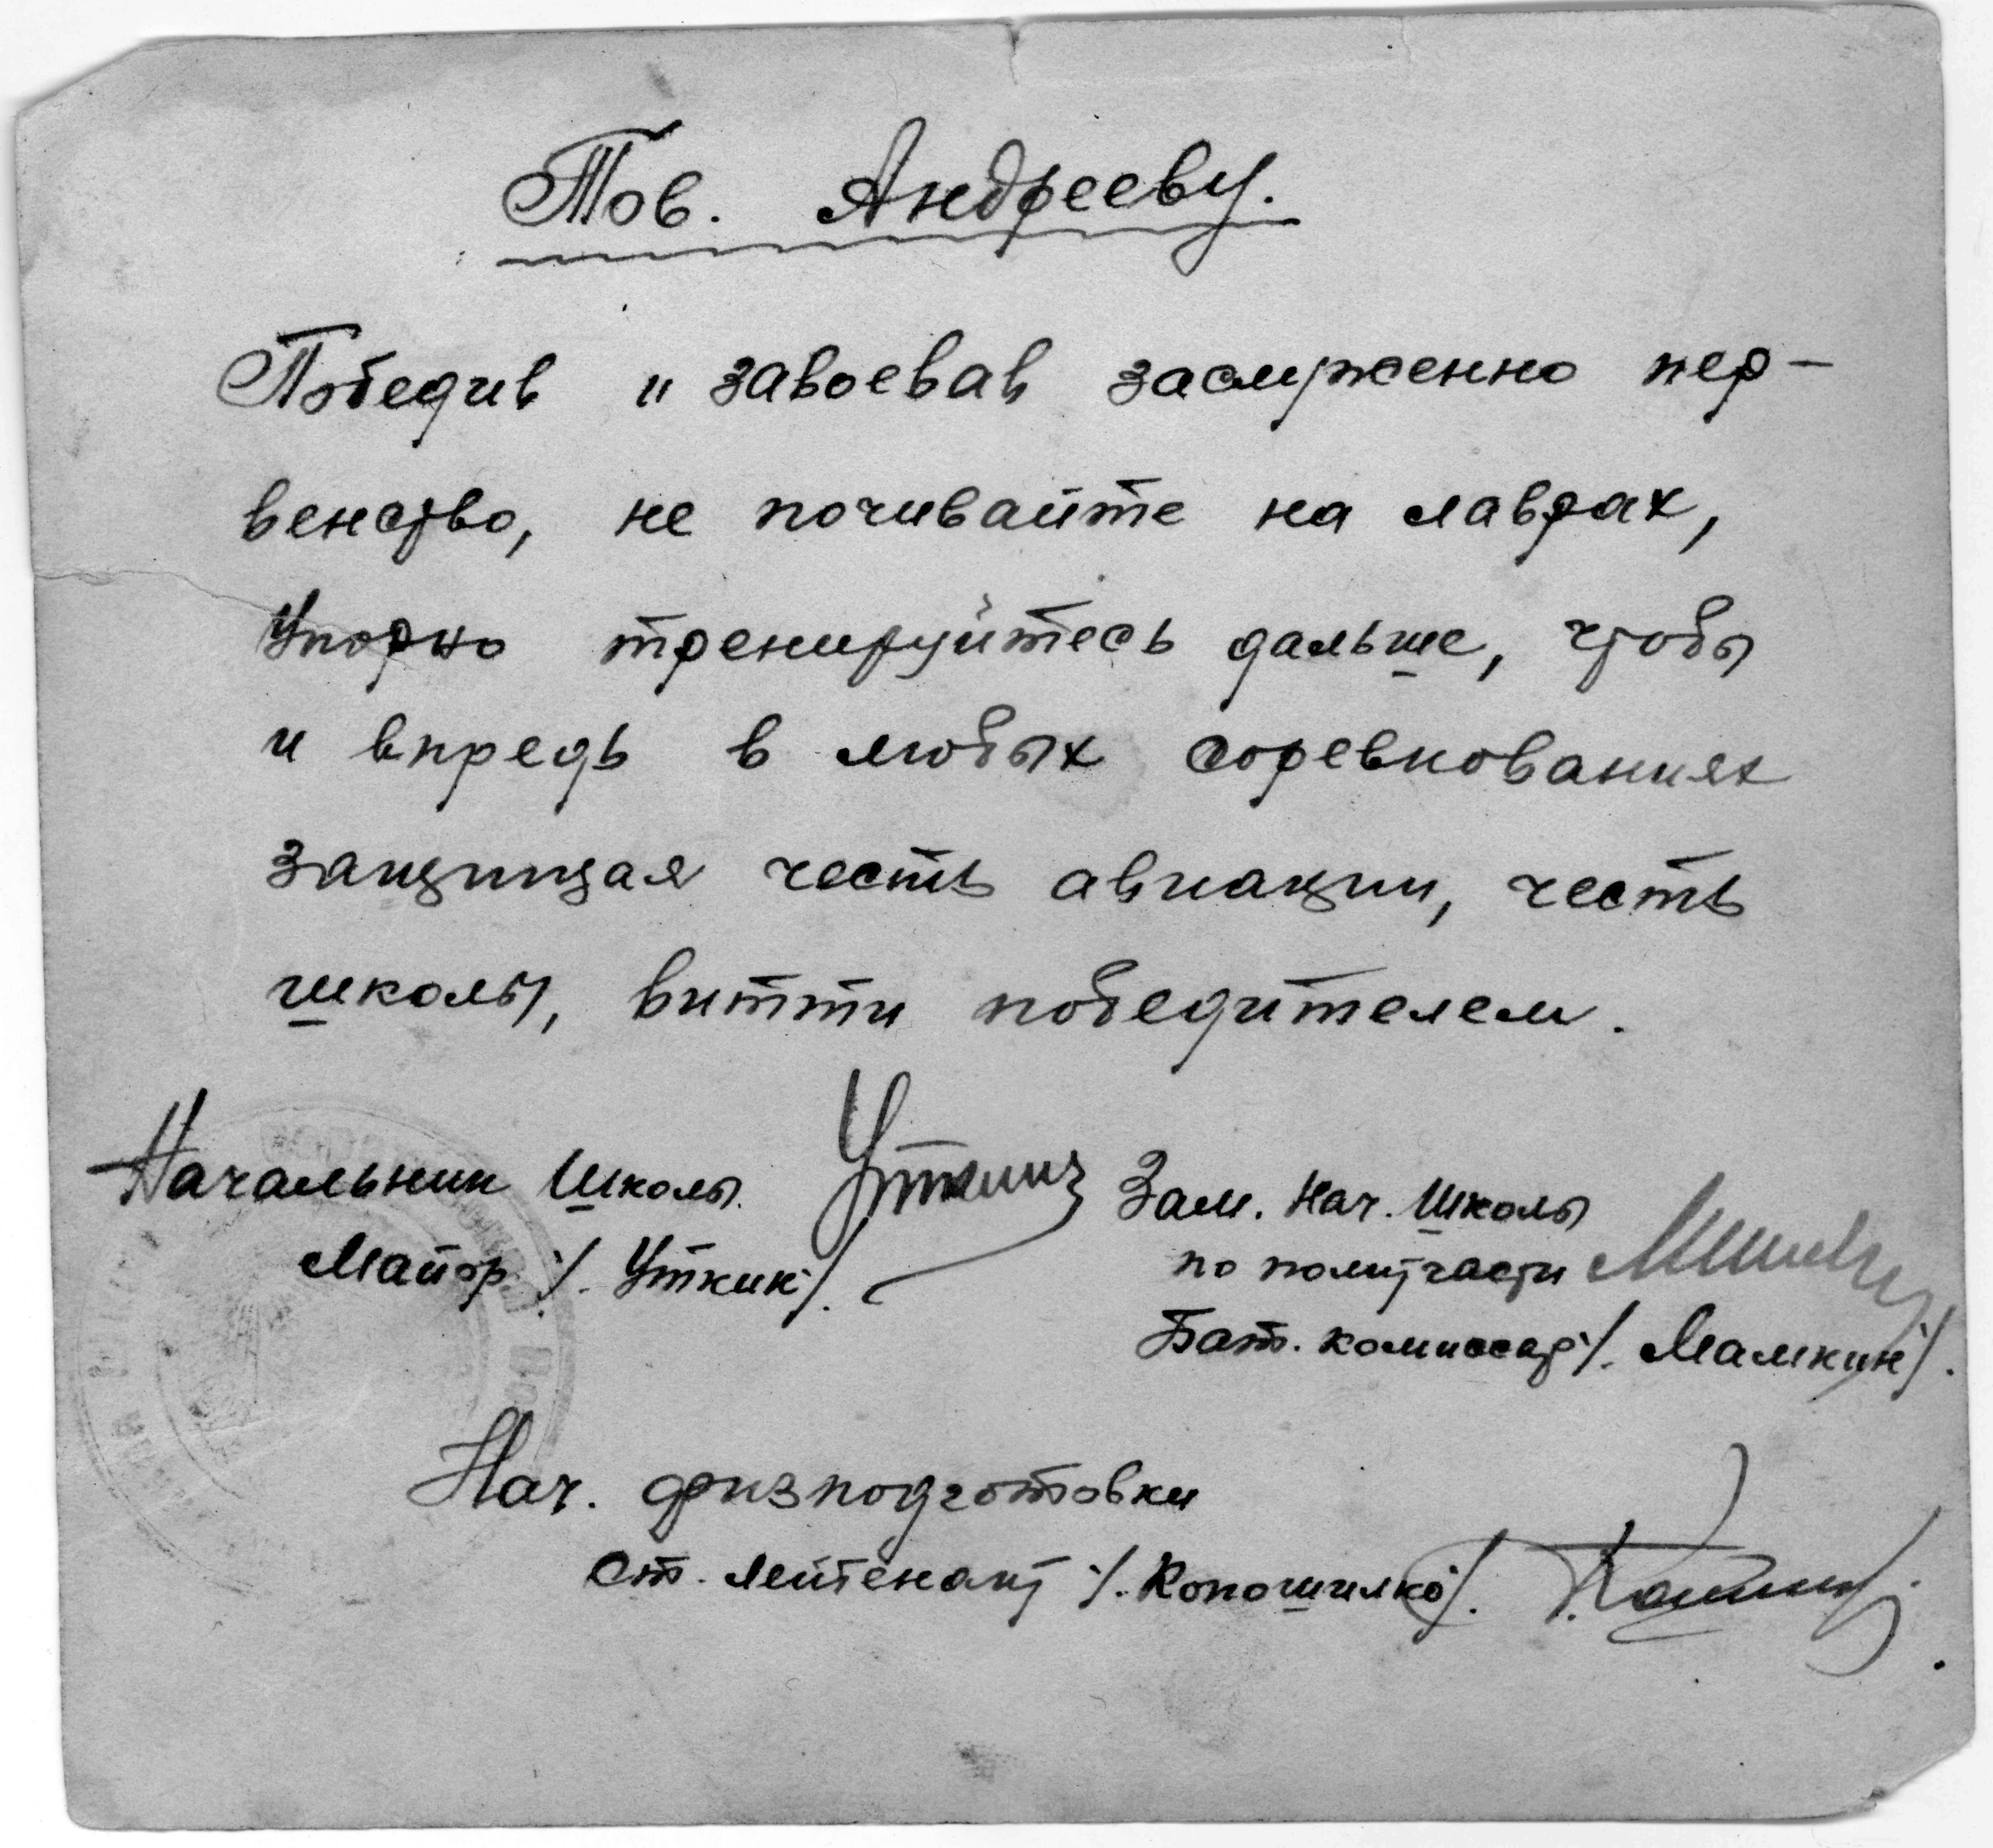 Тов. Андрееву.
Победив и завоевав заслуженно пер-
венство, не почивайте на лаврах,
Упорно тренируйтесь дальше, чтобы
и впредь в любых соревнованиях
защищая честь авиации, честь
школы, витти победителем.
Начальник Школы Уткин
Майор /. Уткин/.
Зам. Нач. Школы
по политчасти
Бат. комиссар /. Мамкин/.
Нач. физподготовки
Ст. лейтенант /. Копошилко/.